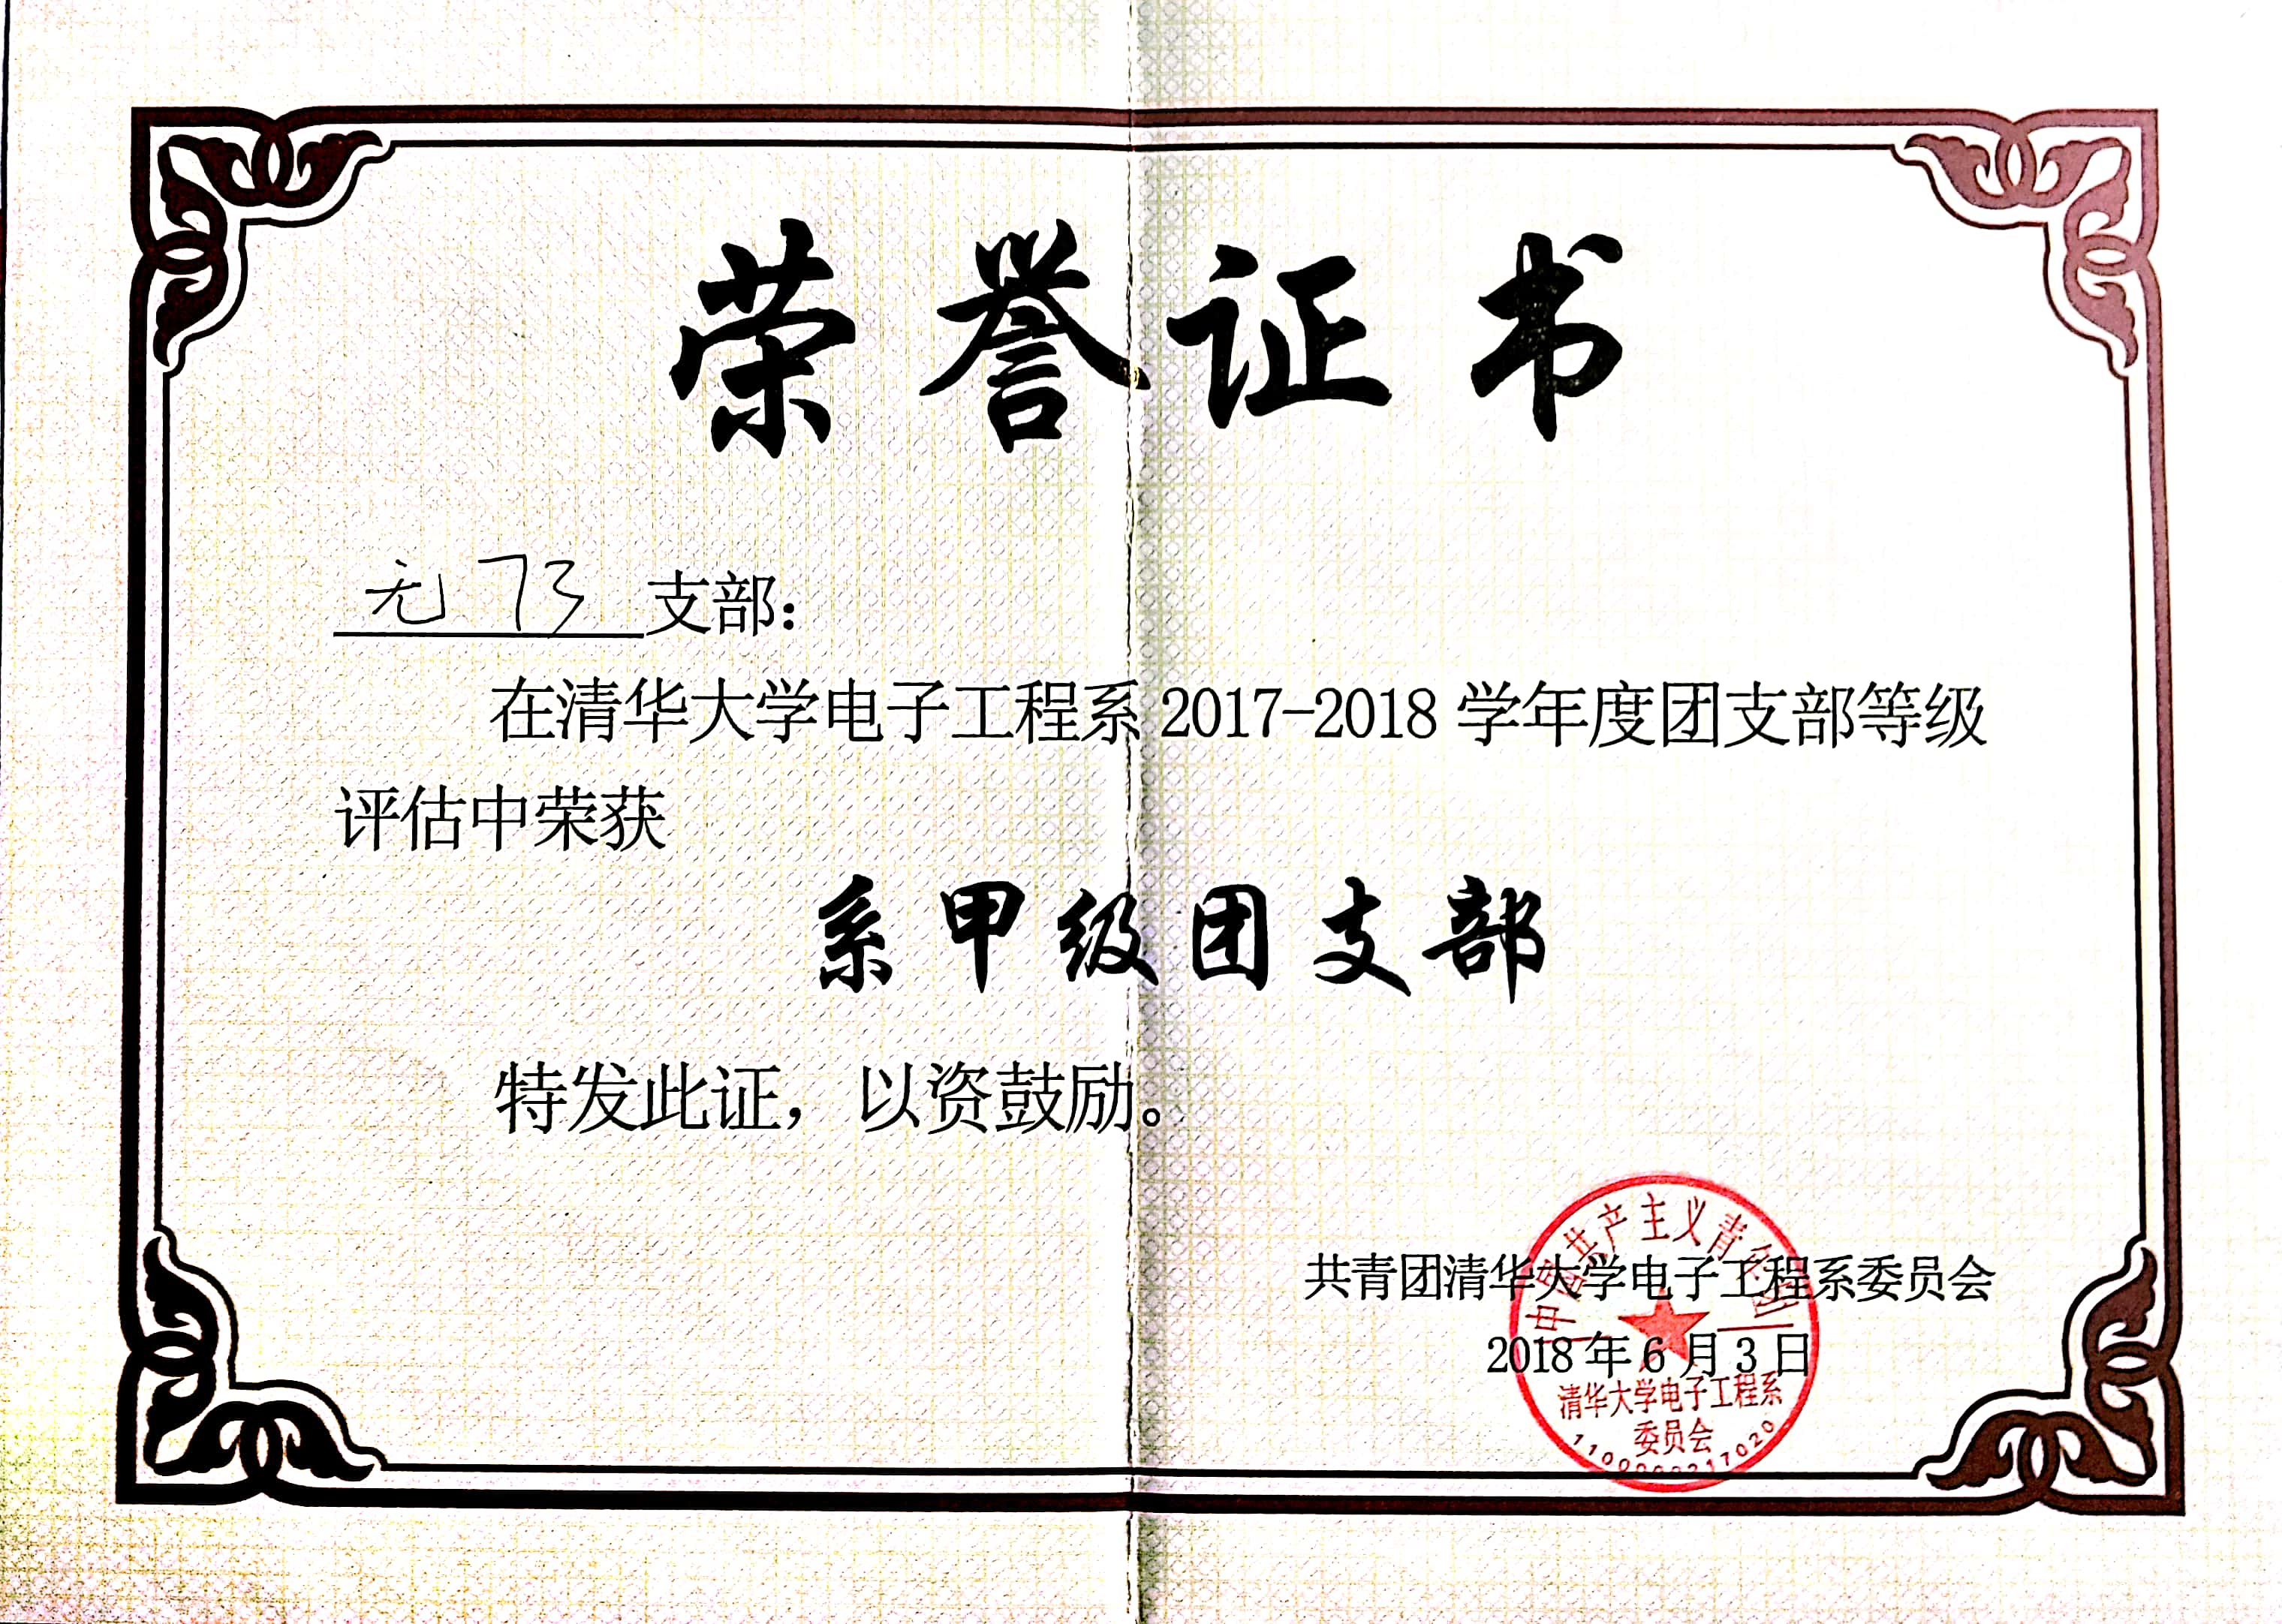 荣誉证书
无73支部:
在清华大学电子工程系 2017-2018 学年度团支部等级
评估中荣获
系甲级团支部
特发此证,以资鼓励。
共青团清华大学电子工程系委员会
2018年6月3日
中国共产主义青年团
清华大学电子工程系
委员会